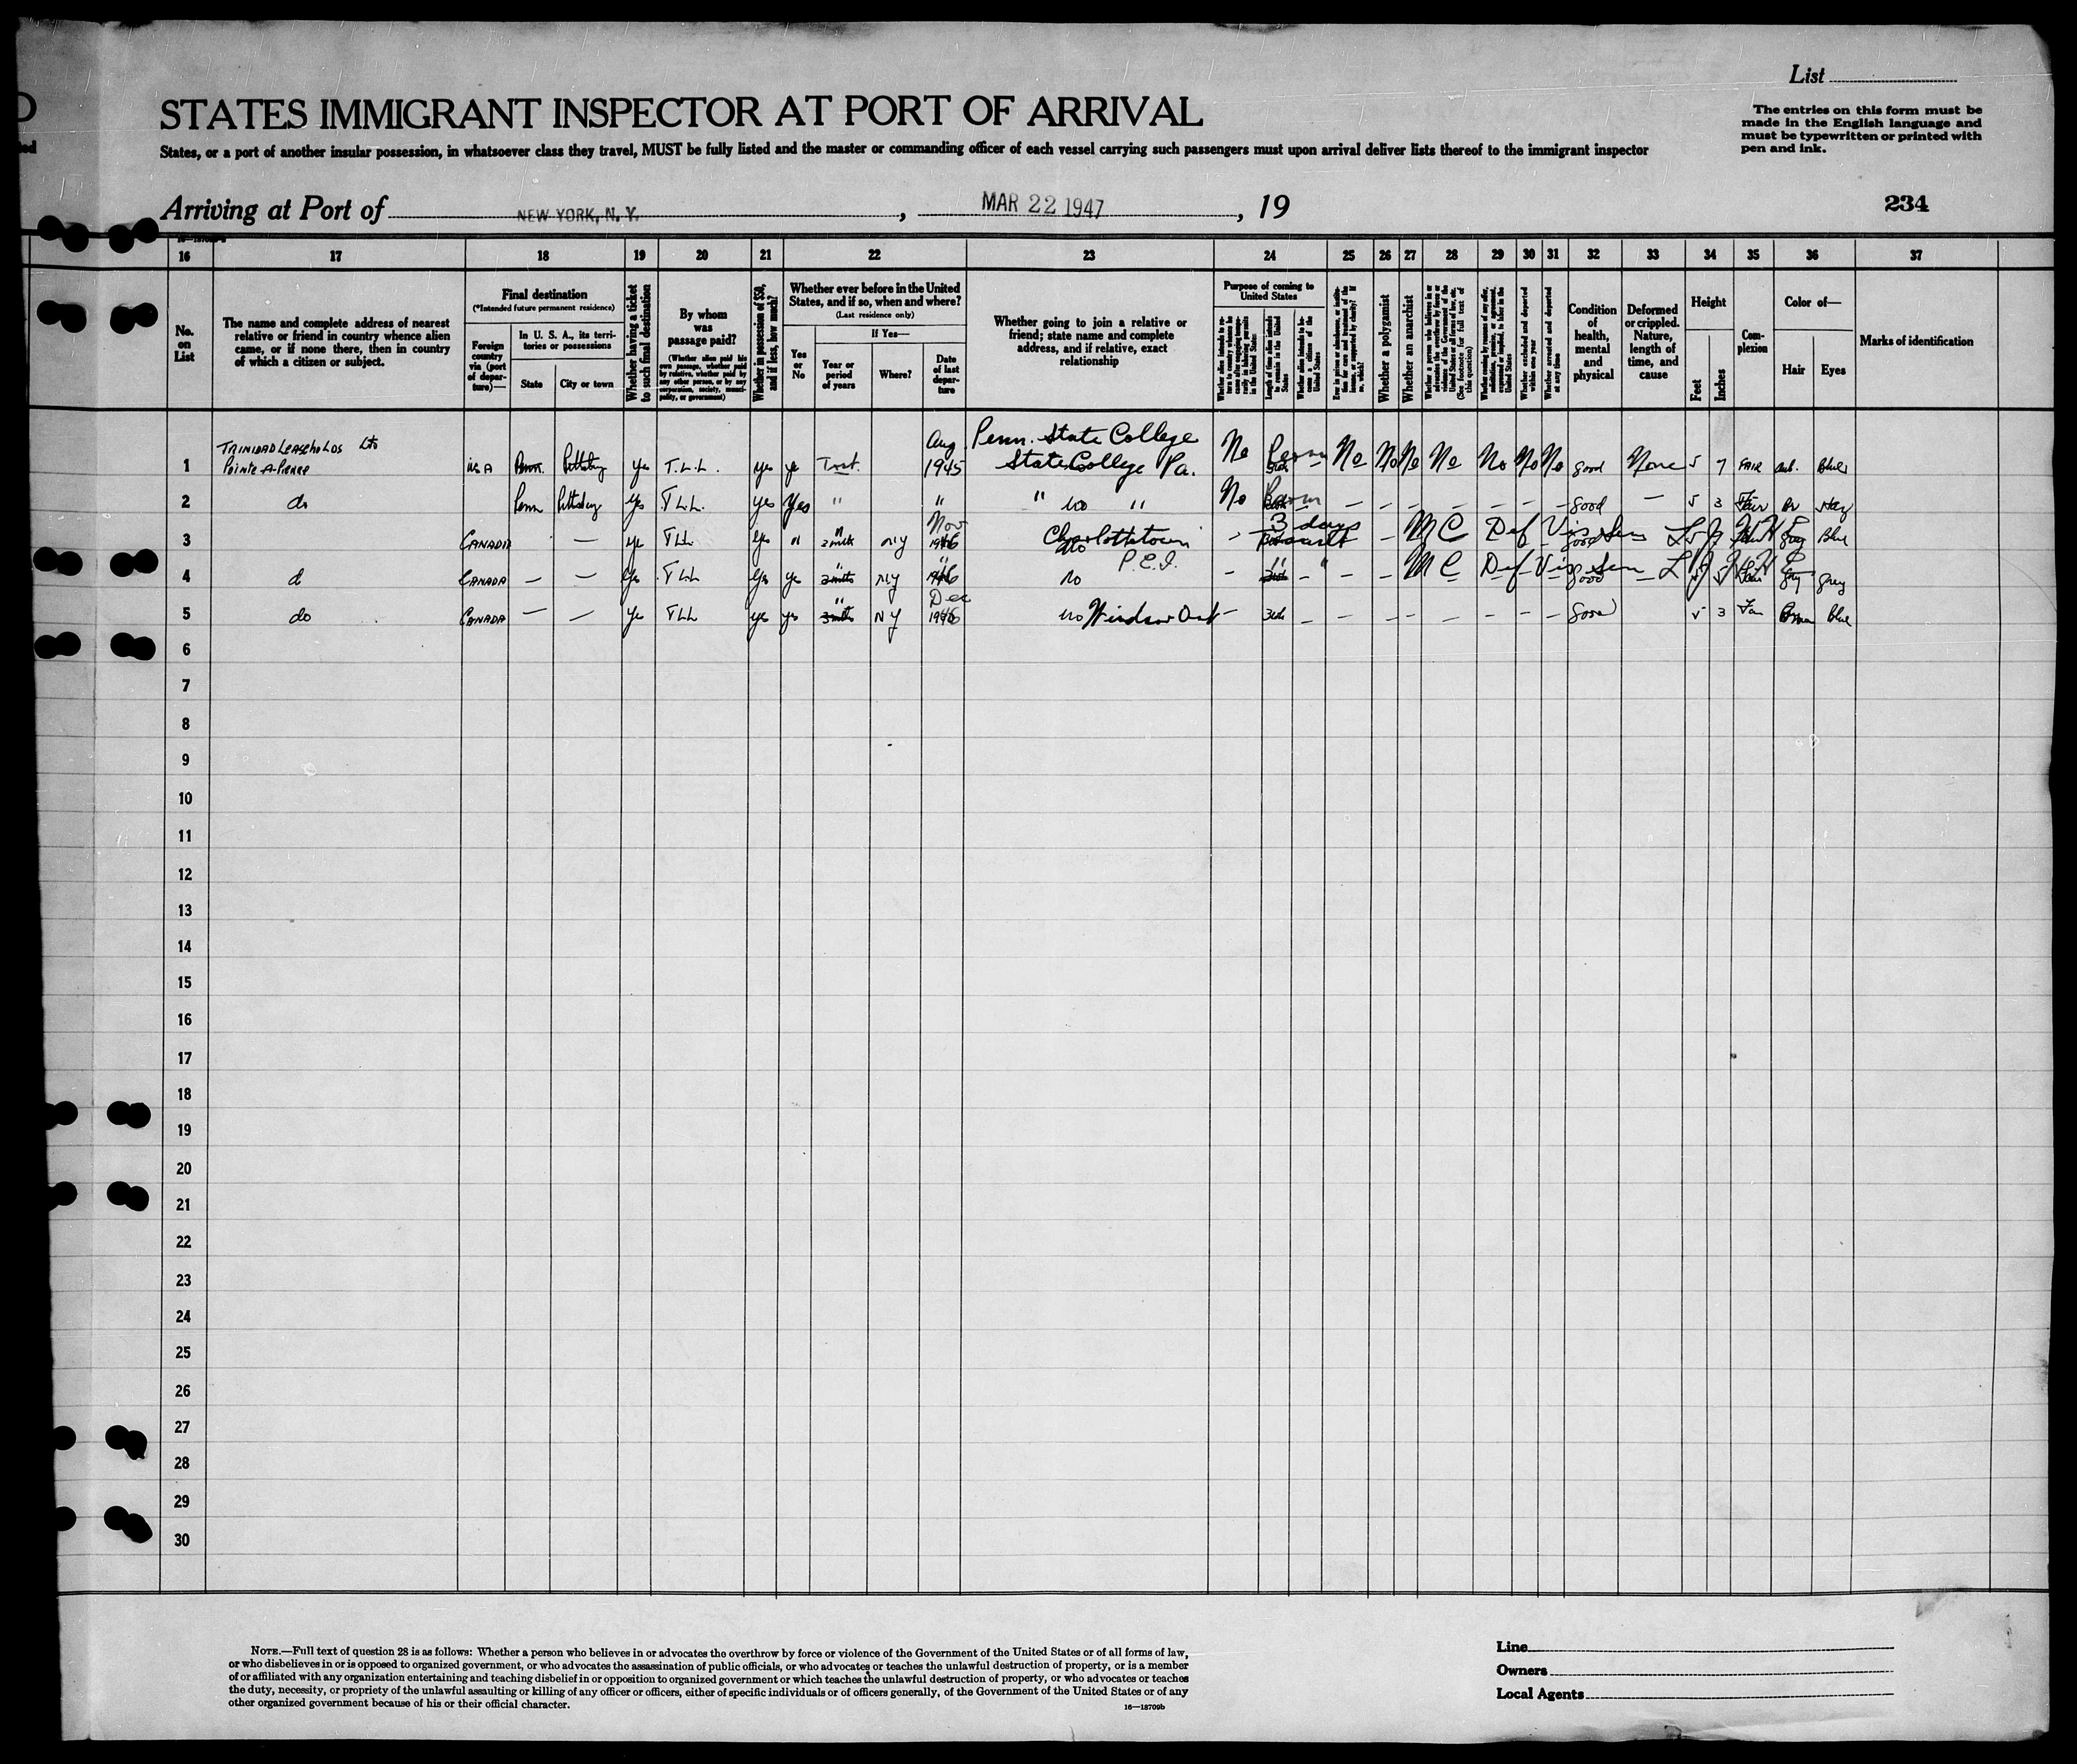 List
STATES IMMIGRANT INSPECTOR AT PORT OF ARRIVAL
The entries on this form must be
made in the English language and
must be typewritten or printed with
pen and ink.
States, or a port of another insular possession, in whatsoever class they travel, MUST be fully listed and the master or commanding officer of each vessel carrying such passengers must upon arrival deliver lists thereof to the immigrant inspector
Arriving at Port of NEW YORK, N. Y. , MAR 22 1947 , 19
234
16 17 18 19 20 21 22 23 24 25 26 27 28 29 30 31 32 33 34 35 36 37
No.
on
List
The name and complete address of nearest
relative or friend in country whence alien
came, or if none there, then in country
of which a citizen or subject.
Final destination
(*Intended future permanent residence)
Foreign
country
via (port
of depar-
ture)—
In U. S. A., its terri-
tories or possessions
State
City or town
Whether having a ticket
to such final destination
By whom
was
passage paid?
(Whether alien paid his
own passage, whether paid
by relative, whether paid by
any other person, or by any
corporation, society, munici-
pality, or government)
Whether in possession of $50,
and if less, how much?
Whether ever before in the United
States, and if so, when and where?
(Last residence only)
Yes
or
No
If Yes—
Year or
period
of years
Where?
Date
of last
depar-
ture
Whether going to join a relative or
friend; state name and complete
address, and if relative, exact
relationship
Purpose of coming to
United States
Whether a polygamist
Whether an anarchist
Whether excluded and deported
within one year
Whether arrested and deported
at any time
Condition
of
health,
mental
and
physical
Deformed
or crippled.
Nature,
length of
time, and
cause
Height
Feet
Inches
Com-
plexion
Color of—
Hair
Eyes
Marks of identification
TRINIDAD LEASEHOLDS Ltd Aug Penn. State College
1 Pointe-A-Pierre USA Penn. Pittsburg yes T.L.L. yes ye 1945 State College Pa. No No No No No No No No good None 5 7 FAIR Blue
2 do Penn Pittsburg yes T.L.L. yes Yes " " " " No — — — — — — — Good — 5 3 Fair Br
Nov 3 days
3 CANADA — ye TLL yes " NY 1946 Charlottetown — M C Def Vis good Gray Blue
P.E.I.
4 d CANADA — — yes TLL yes ye " NY 1946 no — M C Def Vis good Fair Gry Grey
Dec
5 do CANADA — — ye TLL yes yes " NY 1946 Windsor Ont — — — — — — — — Good 5 3 Fair Blue
6
7
8
9
10
11
12
13
14
15
16
17
18
19
20
21
22
23
24
25
26
27
28
29
30
NOTE.—Full text of question 28 is as follows: Whether a person who believes in or advocates the overthrow by force or violence of the Government of the United States or of all forms of law,
or who disbelieves in or is opposed to organized government, or who advocates the assassination of public officials, or who advocates or teaches the unlawful destruction of property, or is a member
of or affiliated with any organization entertaining and teaching disbelief in or opposition to organized government or which teaches the unlawful destruction of property, or who advocates or teaches
the duty, necessity, or propriety of the unlawful assaulting or killing of any officer or officers, either of specific individuals or of officers generally, of the Government of the United States or of any
other organized government because of his or their official character.
16—18709b
Line
Owners
Local Agents